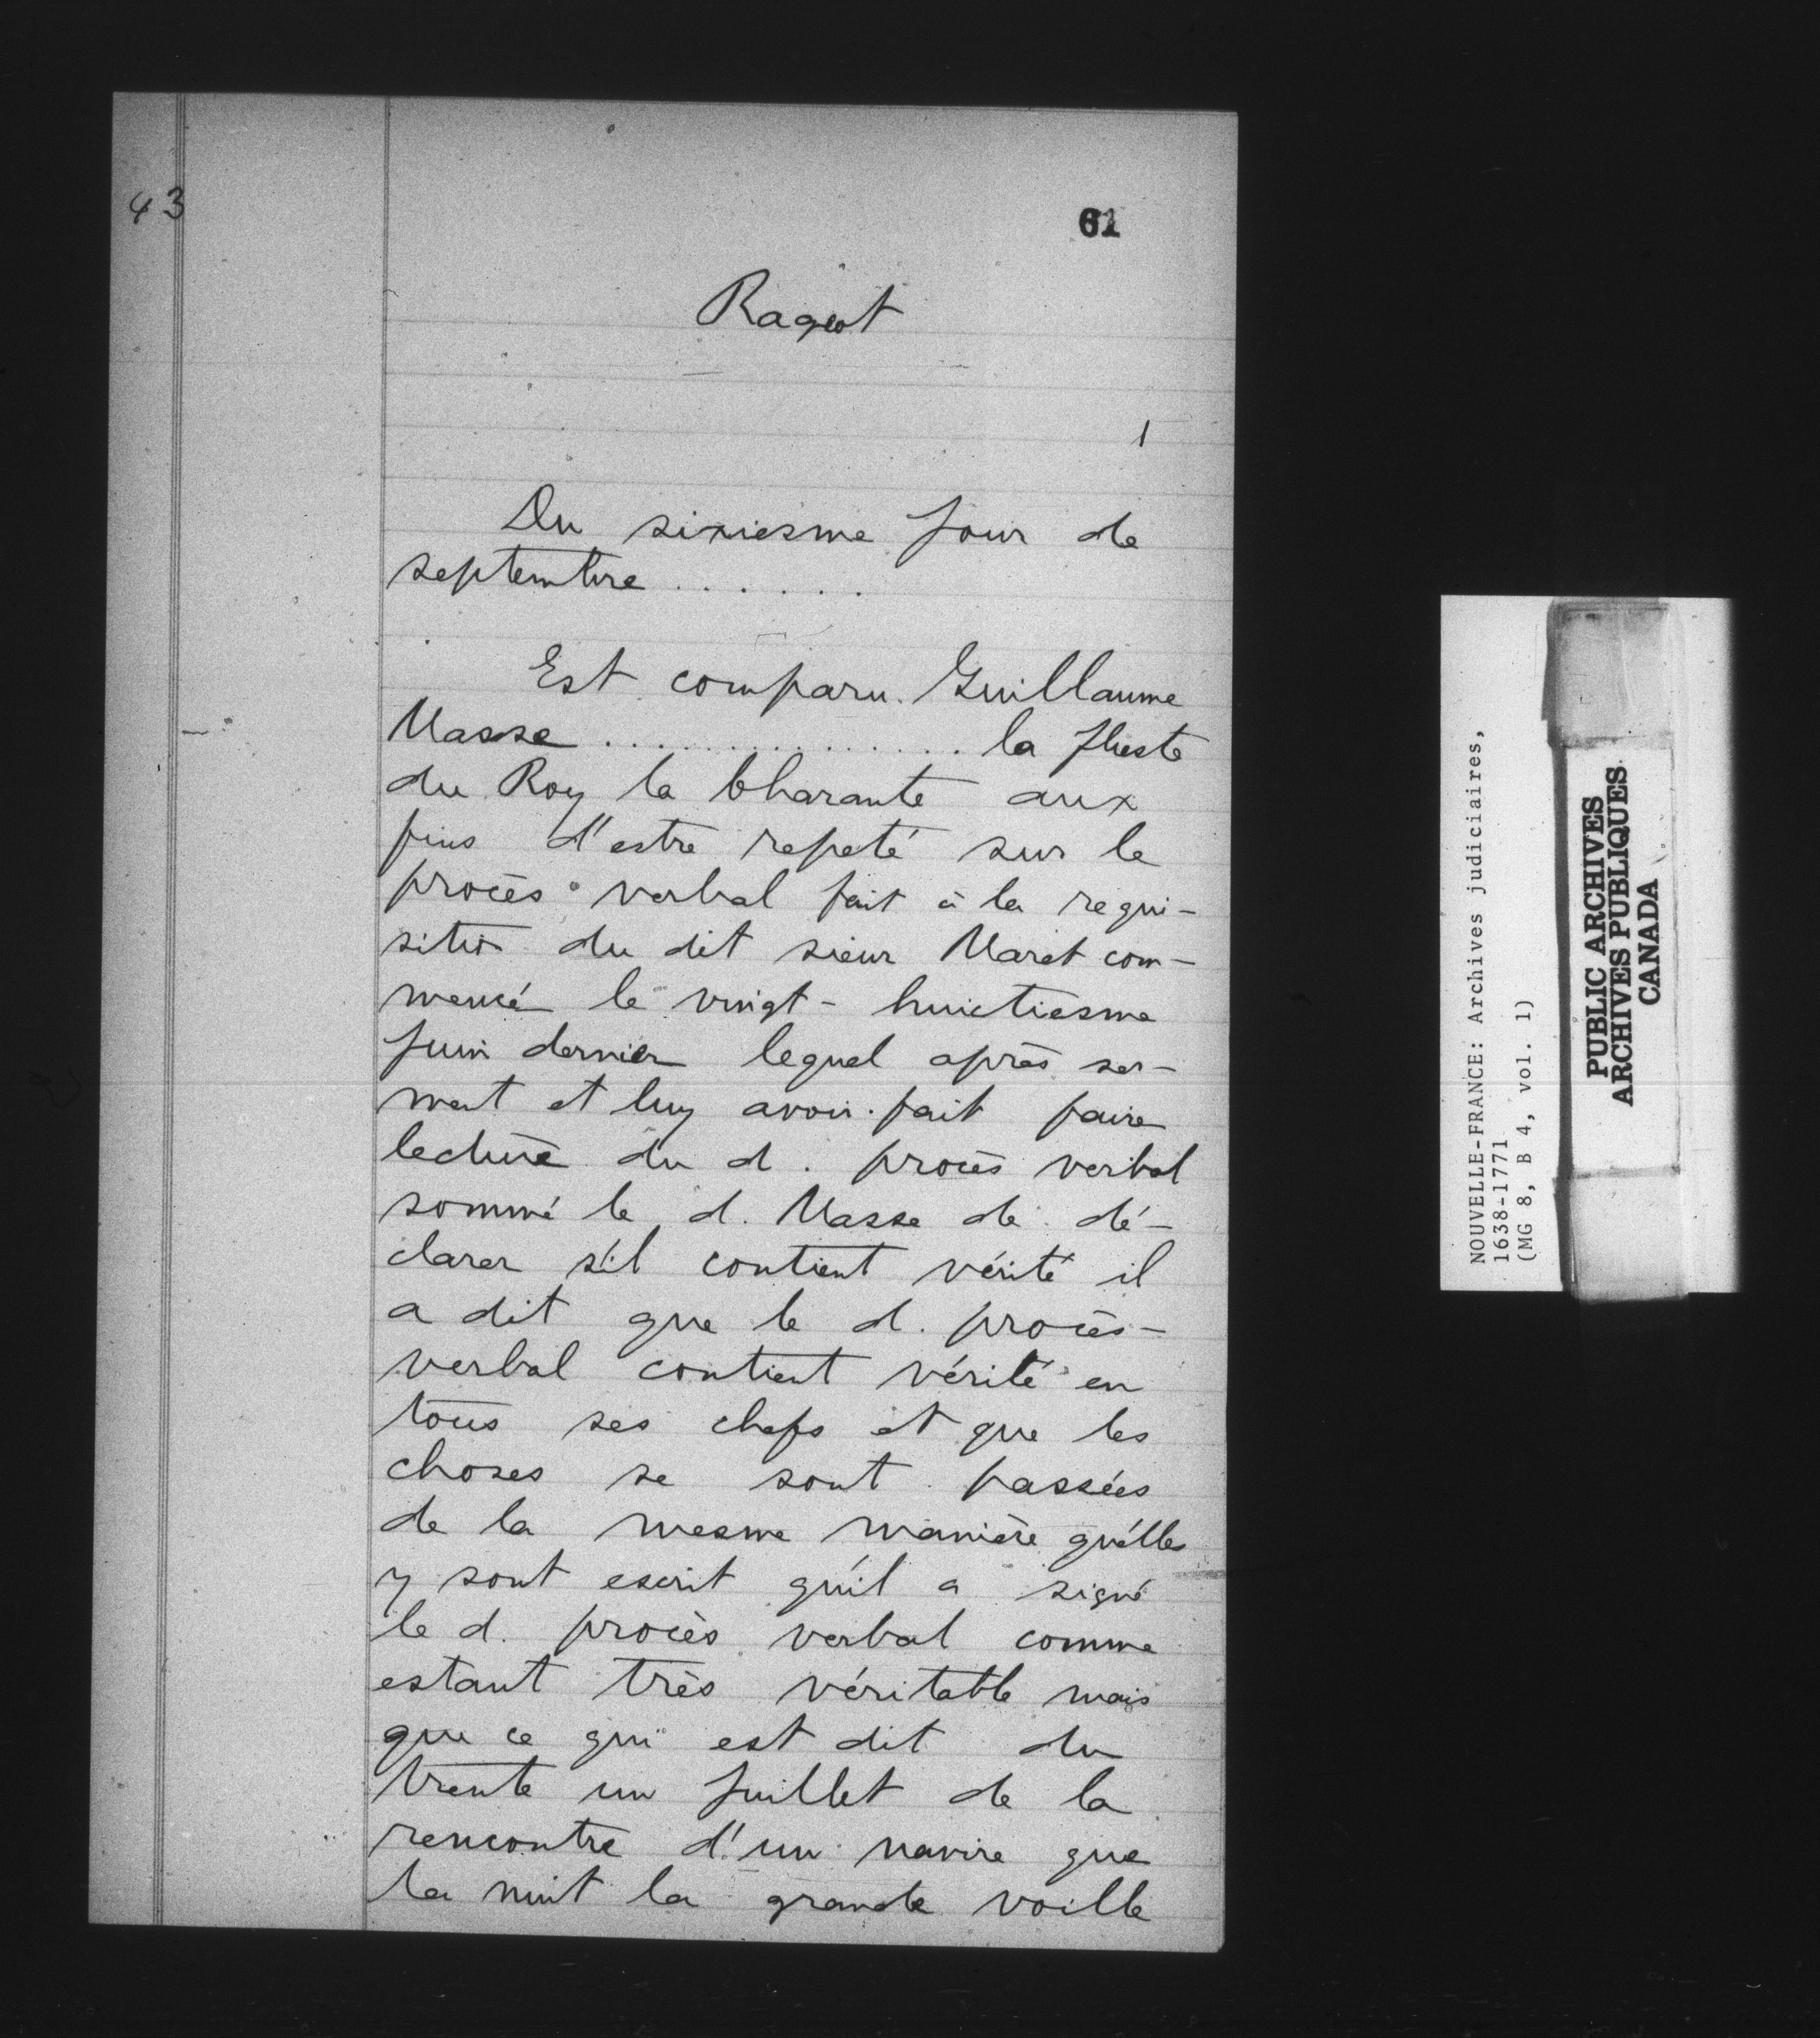 43
61
Rageot
1
Du sixiesme jour de
septembre .......
Est comparu Guillaume
Masse ................ la fluste
du Roy la Charante aux
fins d'estre repeté sur le
procès verbal fait à la requi-
sition du dit sieur Maret com-
mencé le vingt-huictiesme
Juin dernier lequel après ser-
ment et luy avoir fait faire
lecture du d. procès verbal
sommé le d. Masse de dé-
clarer s'il contient vérité il
a dit que le d. procès-
verbal contient vérité en
tous ses chefs et que les
choses se sont passées
de la mesme manière qu'elles
y sont escrit qu'il a signé
le d. procès verbal comme
estant très véritable mais
que ce qui est dit du
trente un juillet de la
rencontre d'un navire que
la nuit la grande voille
NOUVELLE-FRANCE: Archives judiciaires,
1638-1771
(MG 8, B 4, vol. 1)
PUBLIC ARCHIVES
ARCHIVES PUBLIQUES
CANADA